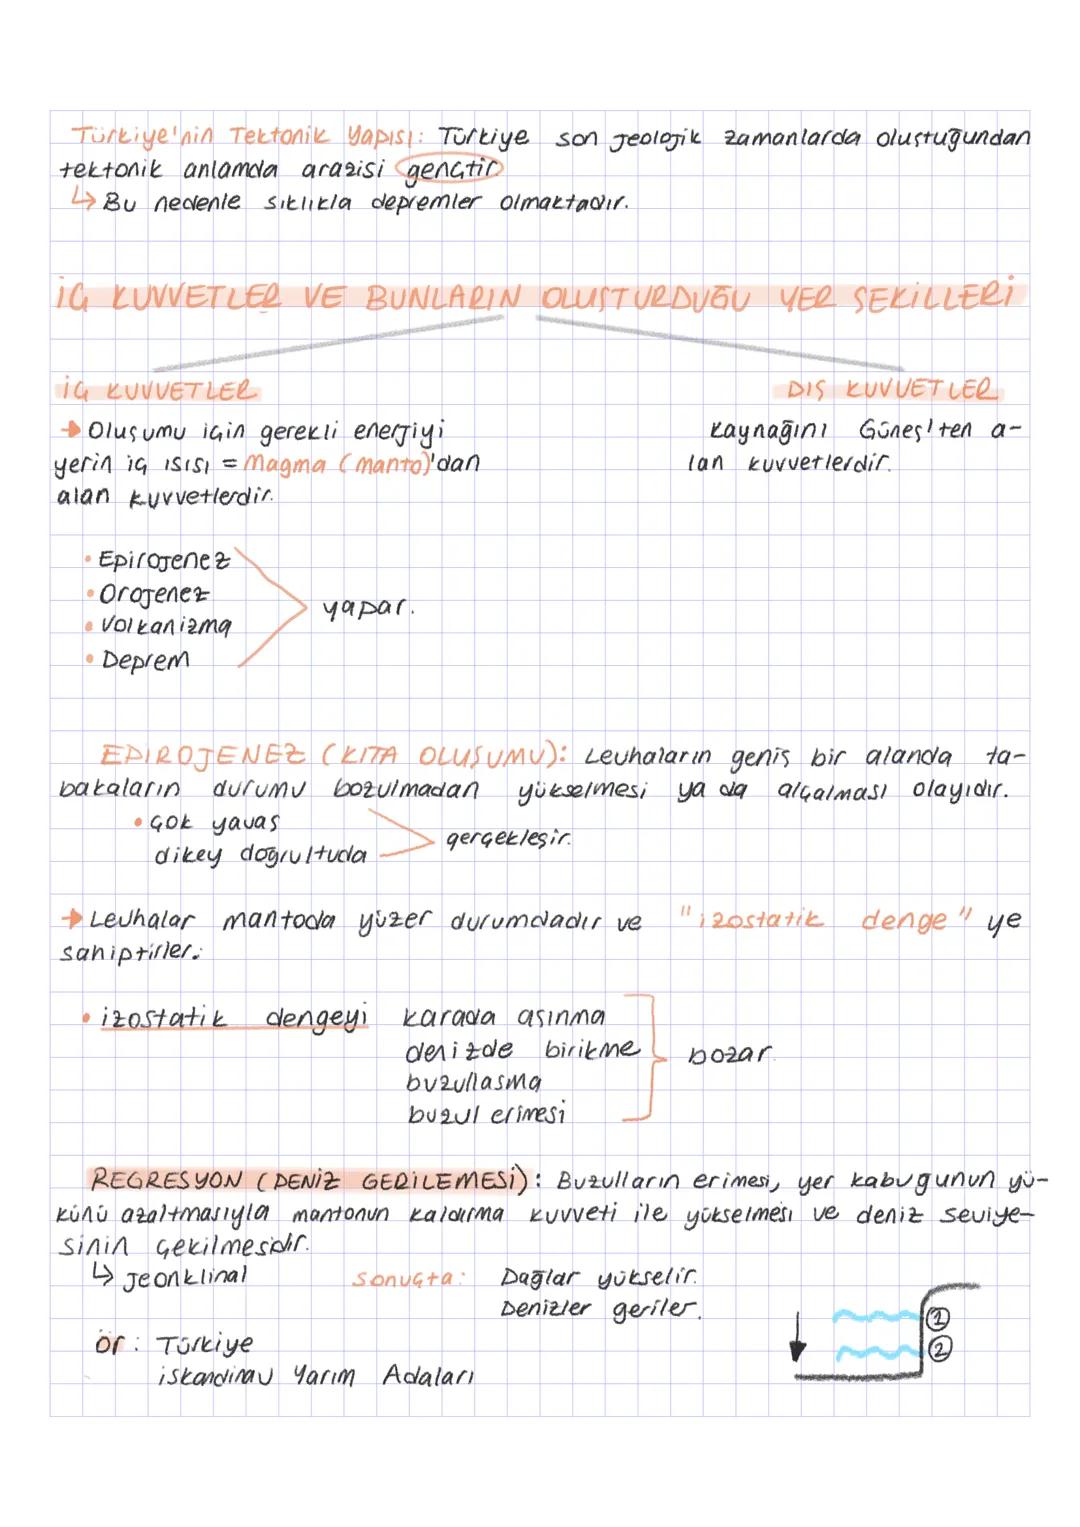 Türkiye'nin Tektonik Yapısı: Türkiye son jeolojik zamanlarda oluştuğundan
tektonik anlamda arazisi gençtir
↳ Bu nedenle sıklıkla depremler olmaktadır.
İÇ KUVVETLER VE BUNLARIN OLUŞTURDUĞU YER ŞEKİLLERİ
İÇ KUVVETLER
→ Oluşumu için gerekli enerjiyi
yerin iç ısısı = Magma (manto)'dan
alan kuvvetlerdir.
DIŞ KUVVETLER
Kaynağını Güneş'ten a-
lan kuvvetlerdir.
• Epirojenez
• Orojenez
• Volkanizma
• Deprem
yapar.
EPİROJENEZ (KITA OLUŞUMU): Levhaların geniş bir alanda ta-
bakaların durumu bozulmadan yükselmesi ya da alçalması olayıdır.
• çok yavaş
dikey doğrultuda
gerçekleşir.
→ Levhalar mantoda yüzer durumdadır ve "izostatik denge" ye
sahiptirler.
• izostatik dengeyi karada aşınma
denizde birikme
buzullaşma
buzul erimesi
bozar.
REGRESYON (DENİZ GERİLEMESİ): Buzulların erimesi, yer kabugunun yü-
künü azaltmasıyla mantonun kaldırma kuvveti ile yükselmesi ve deniz seviye-
sinin çekilmesidir.
↳ jeonklinal
sonuçta: Dağlar yükselir.
Denizler geriler.
ör: Türkiye
iskandinav Yarım Adaları
1
2